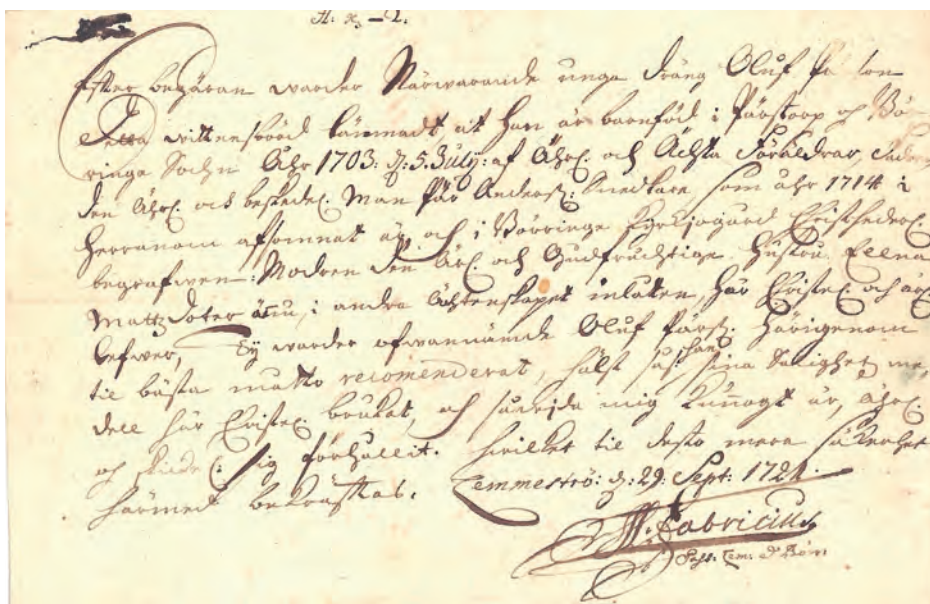 Efter begäran warder Närwarande unga dräng Oluf Pärson
detta wittnesbörd lämnadt, att han är barnfödd i Pärstorp och Bör-
ringa Sochn Åhr 1703: d: 5. Julij: af Ährl. och Ächta Föräldrar, Fadren
den Ährl. och beskedel. Man Pär Anderss: Snedkare, som åhr 1714 i
Herranom afsomnat är och i Börringe Kyrkjogård Christhederl.
begrafwen: Modren den Ärl. och Gudfruchtige Hustru Ellna
Mattzdoter ännu, i andra Ächtenskapet inlåten, här Christel. och ärl.
lefwer, Ty warder ofwannämde Oluf Pärss. härigenom
til bästa matto recomenderat, hälst som han sina Salighetz me-
dell här Christel. brukat, och så wida mig kunnogt är, ährl.
och skickel. sig förhållit. hwilket til desto mera säkerhet
härmed bekräfftas. Lemmeströ: d: 29: Sept: 1724.
Fabricius
Past: Lem: & Börr: